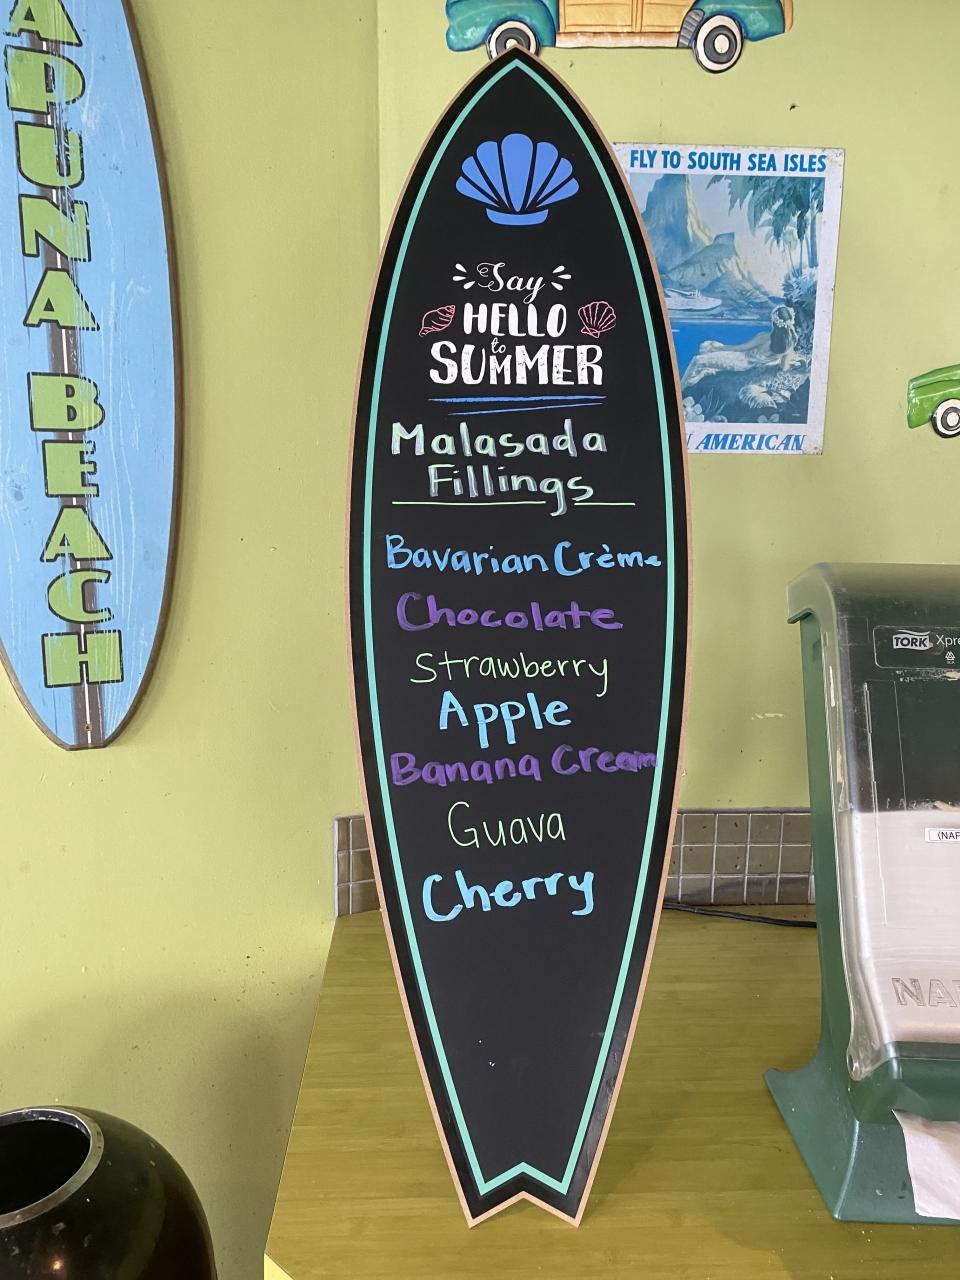 BEACH
Say
HELLO
to
SUMMER
Malasada
Fillings
Bavarian Crème
Chocolate
Strawberry
Apple
Banana Cream
Guava
Cherry
FLY TO SOUTH SEA ISLES
AMERICAN
TORK